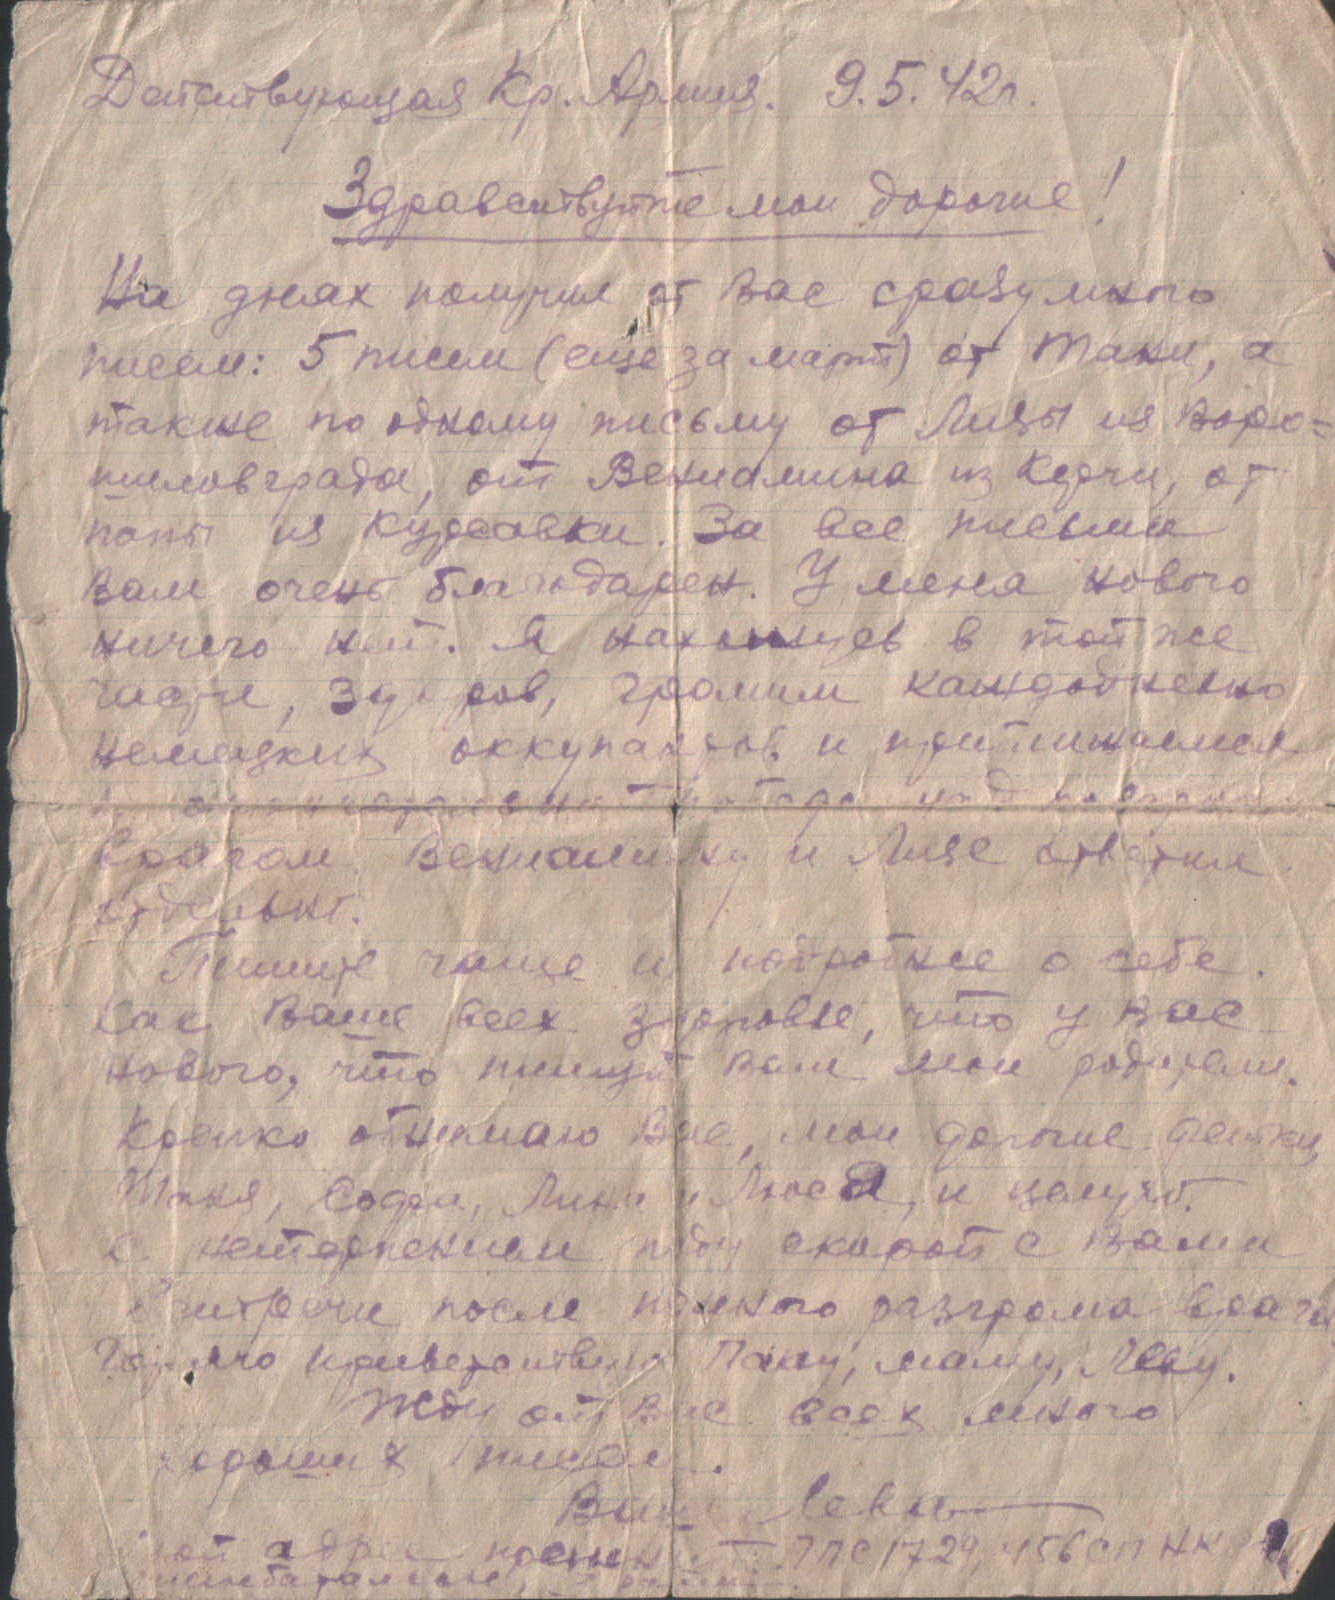 Действующая Кр. Армия. 9.5.42г.
Здравствуйте мои дорогие!
На днях получил от Вас сразу много
писем: 5 писем (еще за март) от Тани, а
также по одному письму от Лизы из Воро=
шиловграда, от Вениамина из Керчи, от
папы из Курсавки. За все письма
Вам очень благодарен. У меня нового
ничего нет. Я нахожусь в той же
части, здоров, громим каждодневно
немецких оккупантов и
над
врагом. Вениамину и Лизе ответил
отдельно.
Пишите чаще и подробнее о себе.
Как Ваше всех здоровье, что у Вас
нового, что пишут Вам мои родители.
Крепко обнимаю Вас, мои дорогие детки,
Таня, Софа, Лина и Люся, и целую.
С нетерпением жду скорой с Вами
встречи после полного разгрома врага
Горячо приветствую Папу, маму, Леву.
Жду от Вас всех много
хороших писем.
Ваш Лева
Мой адрес прежний: ППС 1729, 456 СП НК